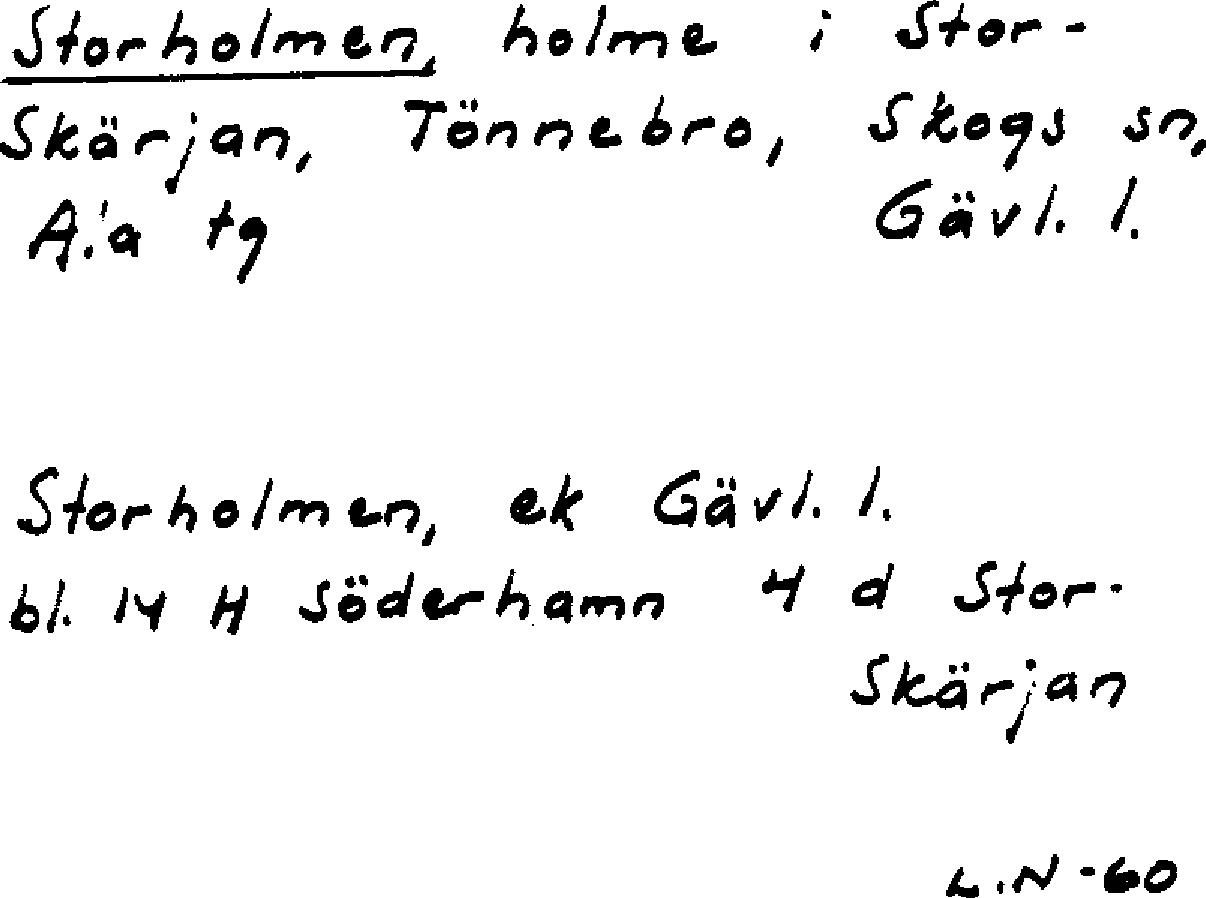 Storholmen, holme i Stor-
Skärjan, Tönnebro, Skogs sn,
A:a tg Gävl. l.
Storholmen, ek Gävl. l.
bl. 14 H Söderhamn 4 d Stor-
Skärjan
L.N -60